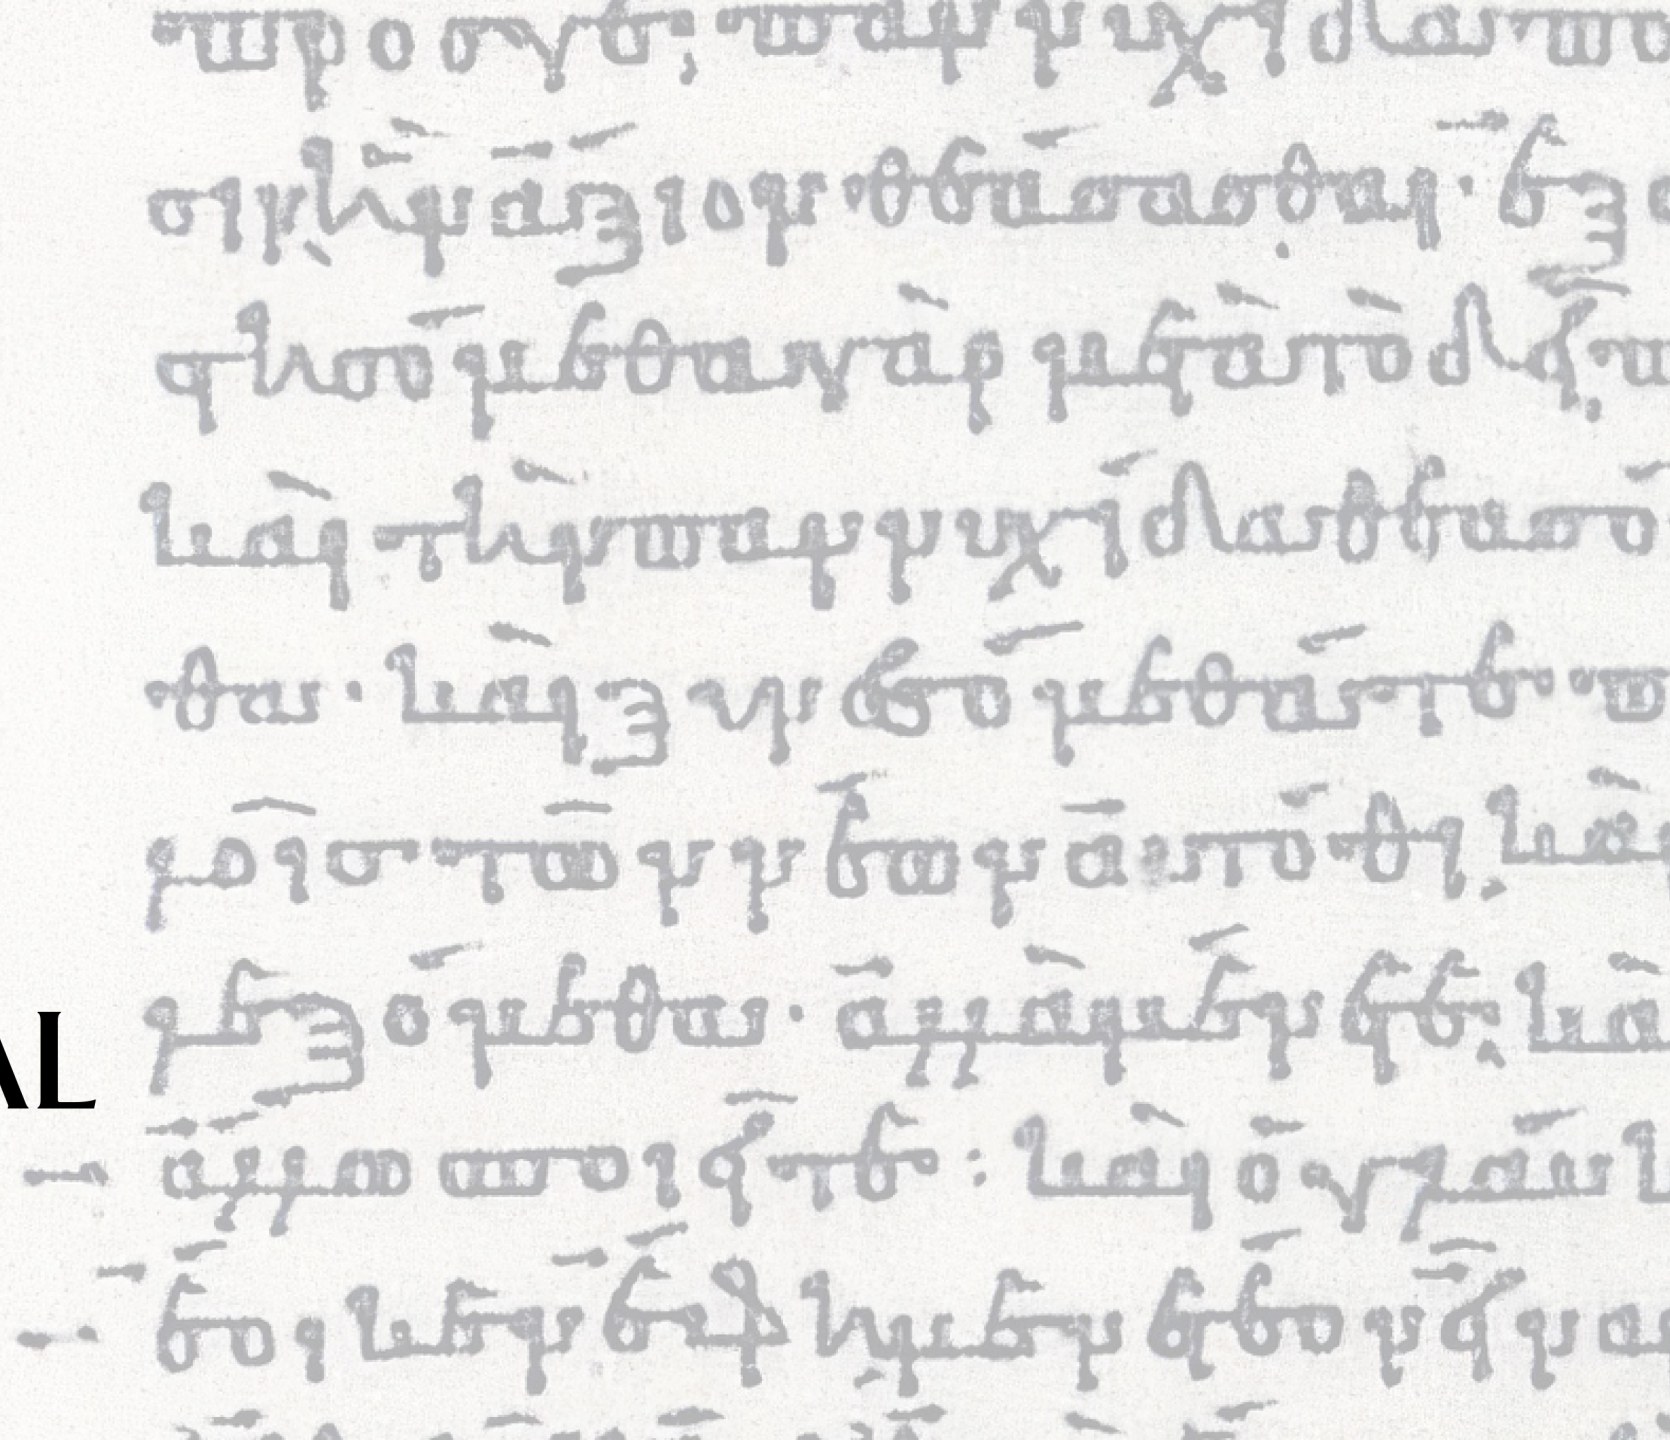 προσγε, παννυχίδα πο
σιν ἣν ἄξιον θεάσασθαι· ἐξ
στησόμεθα γὰρ μετὰ τὸ δεῖπ
καὶ τὴν παννυχίδα θεασό
θα· καὶ ξυνεσόμεθά τε πο
λοῖς τῶν νέων αὐτόθι, καὶ
AL
λεξόμεθα· ἀλλὰ μένετε, κὰ
ἄλλως ποιεῖτε: καὶ ὁ γλαύκ
ἔοικεν ἔφη μενετέον εἶνα